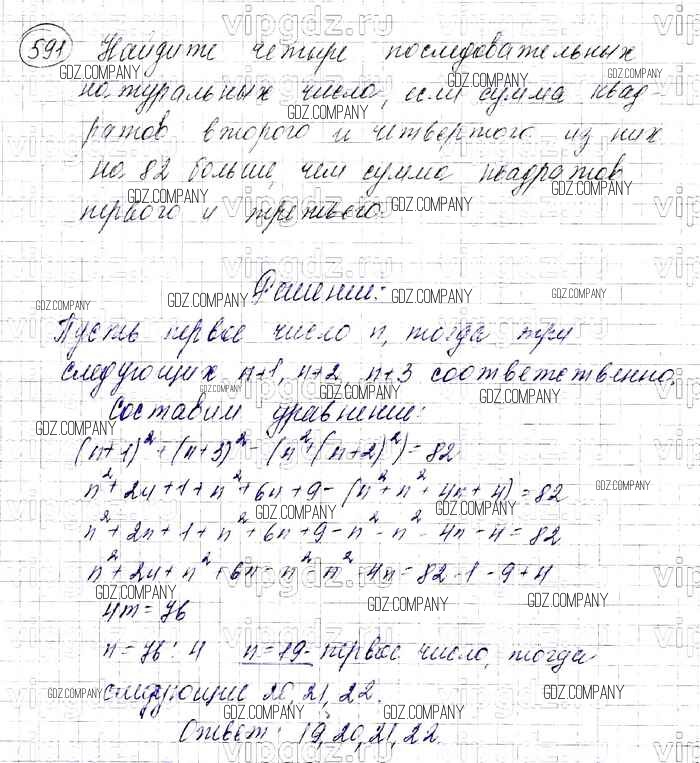 591 Найдите четыре последовательных
натуральных числа, если сумма квад-
ратов второго и четвертого из них
на 82 больше, чем сумма квадратов
первого и третьего.
Решение:
Пусть первое число n, тогда три
следующих n+1, n+2, n+3 соответственно.
Составим уравнение:
(n+1)²+(n+3)²-(n²+(n+2)²)=82
n²+2n+1+n²+6n+9-(n²+n²+4n+4)=82
n²+2n+1+n²+6n+9-n²-n²-4n-4=82
n²+2n+n²+6n-n²-n²-4n=82-1-9+4
4n=76
n=76:4 n=19- первое число, тогда
следующие 20, 21, 22.
Ответ: 19, 20, 21, 22.